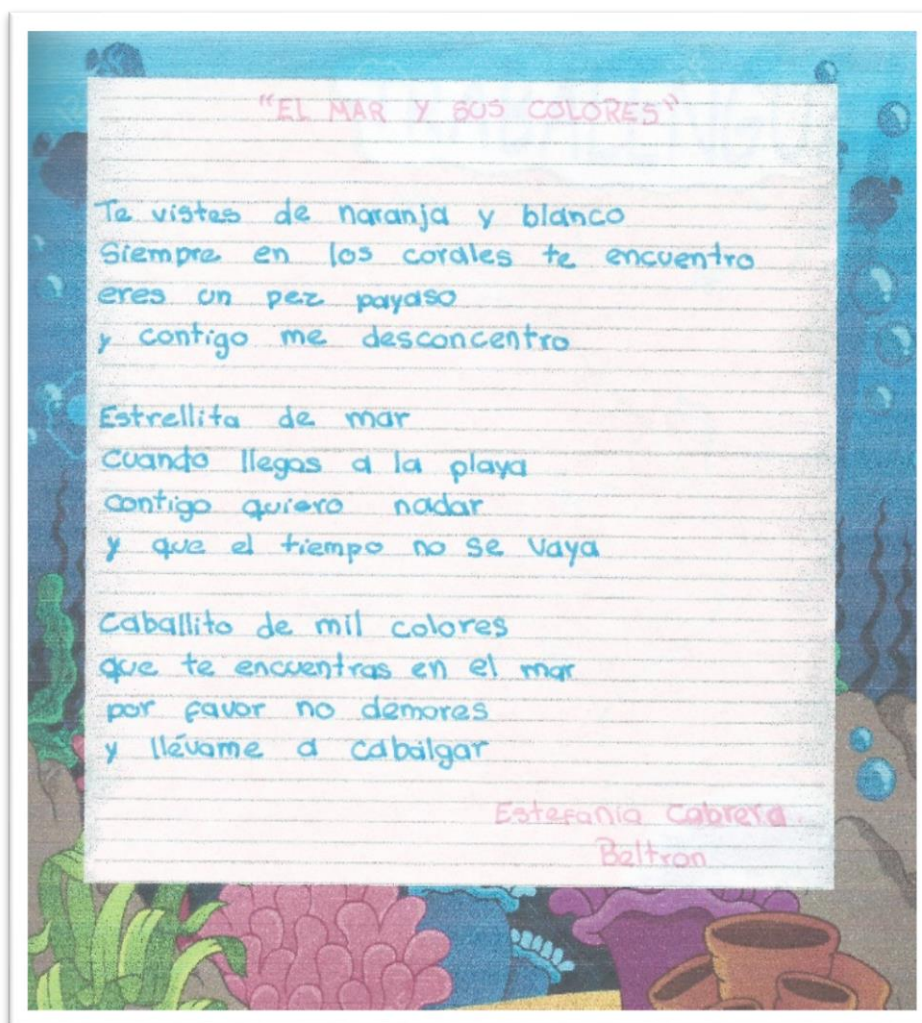 "EL MAR Y SUS COLORES"
Te vistes de naranja y blanco
Siempre en los corales te encuentro
eres un pez payaso
y contigo me desconcentro
Estrellita de mar
cuando llegas a la playa
contigo quiero nadar
y que el tiempo no se vaya
Caballito de mil colores
que te encuentras en el mar
por favor no demores
y llévame a cabalgar
Estefanía Cabrera
Beltron